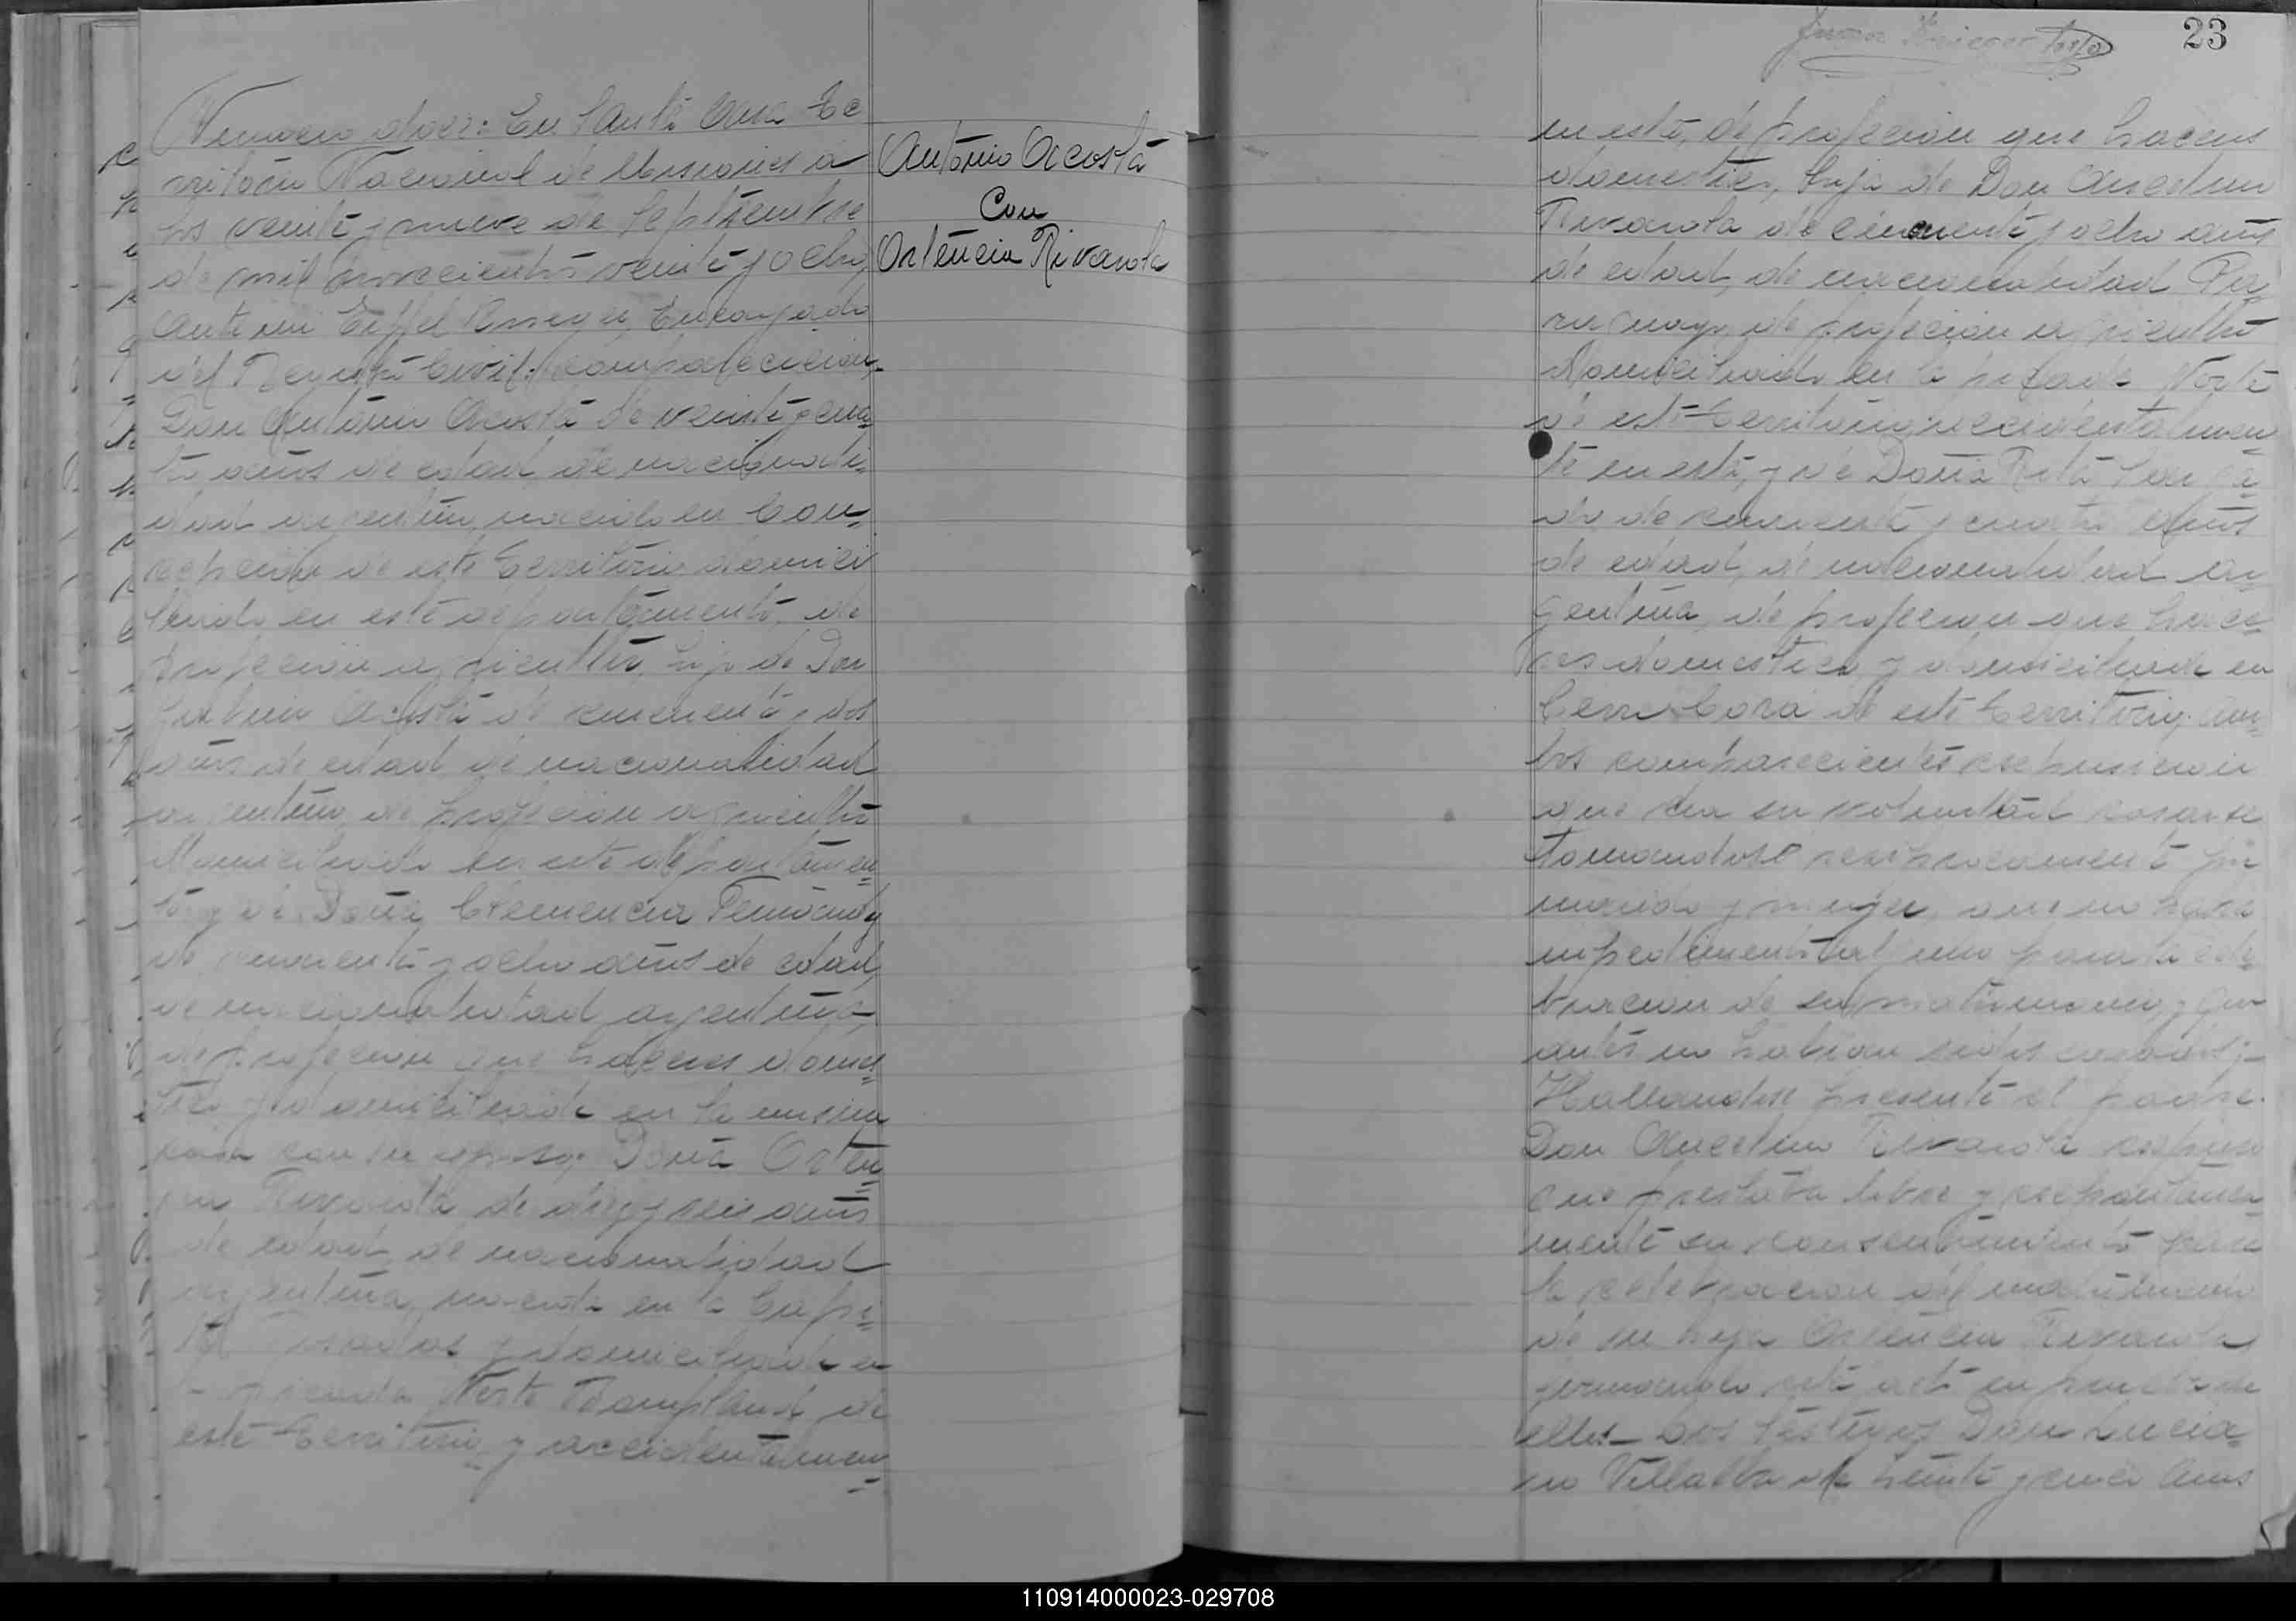 Numero doce: En Santa Ana Te
rritorio Nacional de Misiones a
los veinte y nueve de Septiembre
de mil novecientos veinte y ocho,
Ante mi Encargado
del Registro Civil: comparecieron
Don Antonio Acosta de veinte y cua
tro años de edad de nacionali
dad argentino, nacido en Con
cepcion de este Territorio domici
liado en este departamento, de
profecion agricultor, hijo de Don
Acosta de cincuenta y dos
años de edad, de nacionalidad
argentino de profecion agricultor
domiciliado en este departamen
to y de Doña Clemencia Fernandez
de cuarenta y ocho años de edad,
de nacionalidad argentina,
de profecion que haceres domes
tico y domiciliada en la misma
casa con su esposo; Doña Orten
cia Rivarola de diez y seis años
de edad de nacionalidad
argentina, nacida en la Capi
tal Posadas y domiciliada en
la picada Norte Bompland de
este Territorio y accidentalmen
Antonio Acosta
Con
Ortencia Rivarola
23
Juan Krieger
en esta, de profecion que haceres
domestico, hija de Don Ancelmo
Rivarola de cincuenta y ocho años
de edad, de nacionalidad Pa
raguayo, de profecion agricultor
domiciliado en la picada Norte
de este Territorio, accidentalmen
te en esta, y de Doña Rita
de cuarenta y cuatro años
de edad, de nacionalidad ar
gentina, de profecion que hace
res domestico y domiciliada en
Cerro Corá de este Territorio. Am
bos comparecientes expusieron
que era su voluntad casarse
tomandose reciprocamente por
marido y mujer, que no habia
impedimento alguno para la cele
bracion de su matrimonio, y que
antes no habian sidos casados;
Hallandose presente el padre
Don Ancelmo Rivarola expuso
que prestaba libre y espontanea
mente su consentimiento para
la celebracion del matrimonio
de su hija Ortencia Rivarola
firmando esta acta en prueba de
ello. Los testigos Don Lucia
no Villalba de treinta y cinco años
110914000023-029708